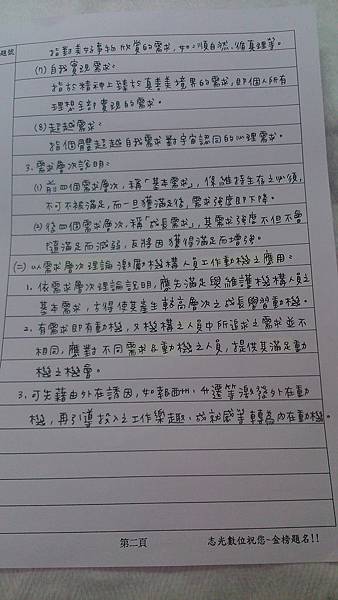 題號
指對美好事物欣賞的需求,如:順自然、循真理等。
(7)自我實現需求:
指於精神上臻於真善美境界的需求,即個人所有
理想全部實現的需求。
(8)超越需求:
指個體超越自我需求對宇宙認同的心理需求。
3.需求層次說明:
(1)前四個需求層次,稱「基本需求」,係維持生存之必須,
不可不被滿足,而一旦獲滿足後,需求強度即下降。
(2)後四個需求層次,稱「成長需求」,其需求強度不但不會
隨滿足而減弱,反將因獲得滿足而增強。
(二)以需求層次理論激勵機構人員工作動機之應用:
1.依需求層次理論說明,應先滿足與維護機構人員之
基本需求,才得使其產生較高層次之成長學習動機。
2.有需求即有動機,又機構之人員中所追求之需求並不
相同,應對不同需求&動機之人員,提供其滿足動
機之機會。
3.可先藉由外在誘因,如報酬、升遷等激發外在動
機,再引導投入之工作樂趣、成就感等轉為內在動機。
第二頁
志光數位祝您-金榜題名!!